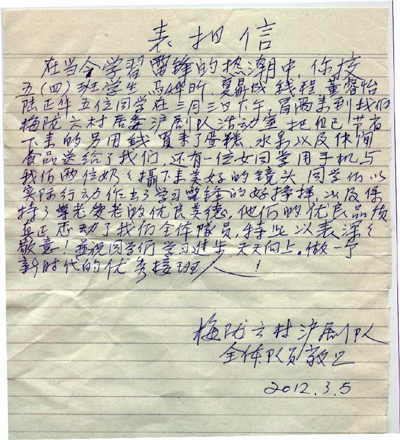 表扬信
在当今学習雷锋的热潮中,你校
五(四)班学生 馬 昕 夏 成 钱程 董睿怡
陆正华 五位同学在三月三日下午,冒雨来到我们
梅陇六村居委沪剧队活动室 把自己节省
下来的另用钱買来了蛋糕、水果以及休闲
食品送给了我们,还有一位女同学用手机与
我们两位奶奶攝下美好的镜头 同学们以
实际行动作出了学習雷锋的好榜样,以及保
持了尊老爱老的优良美德。他们的优良品质
真正感动了我们全体隊员,特此以表深深
敬意!并祝同学们学習進步 天天向上。做一个
新时代的优秀接班人!
梅陇六村沪剧队
全体队员敬上
2012.3.5